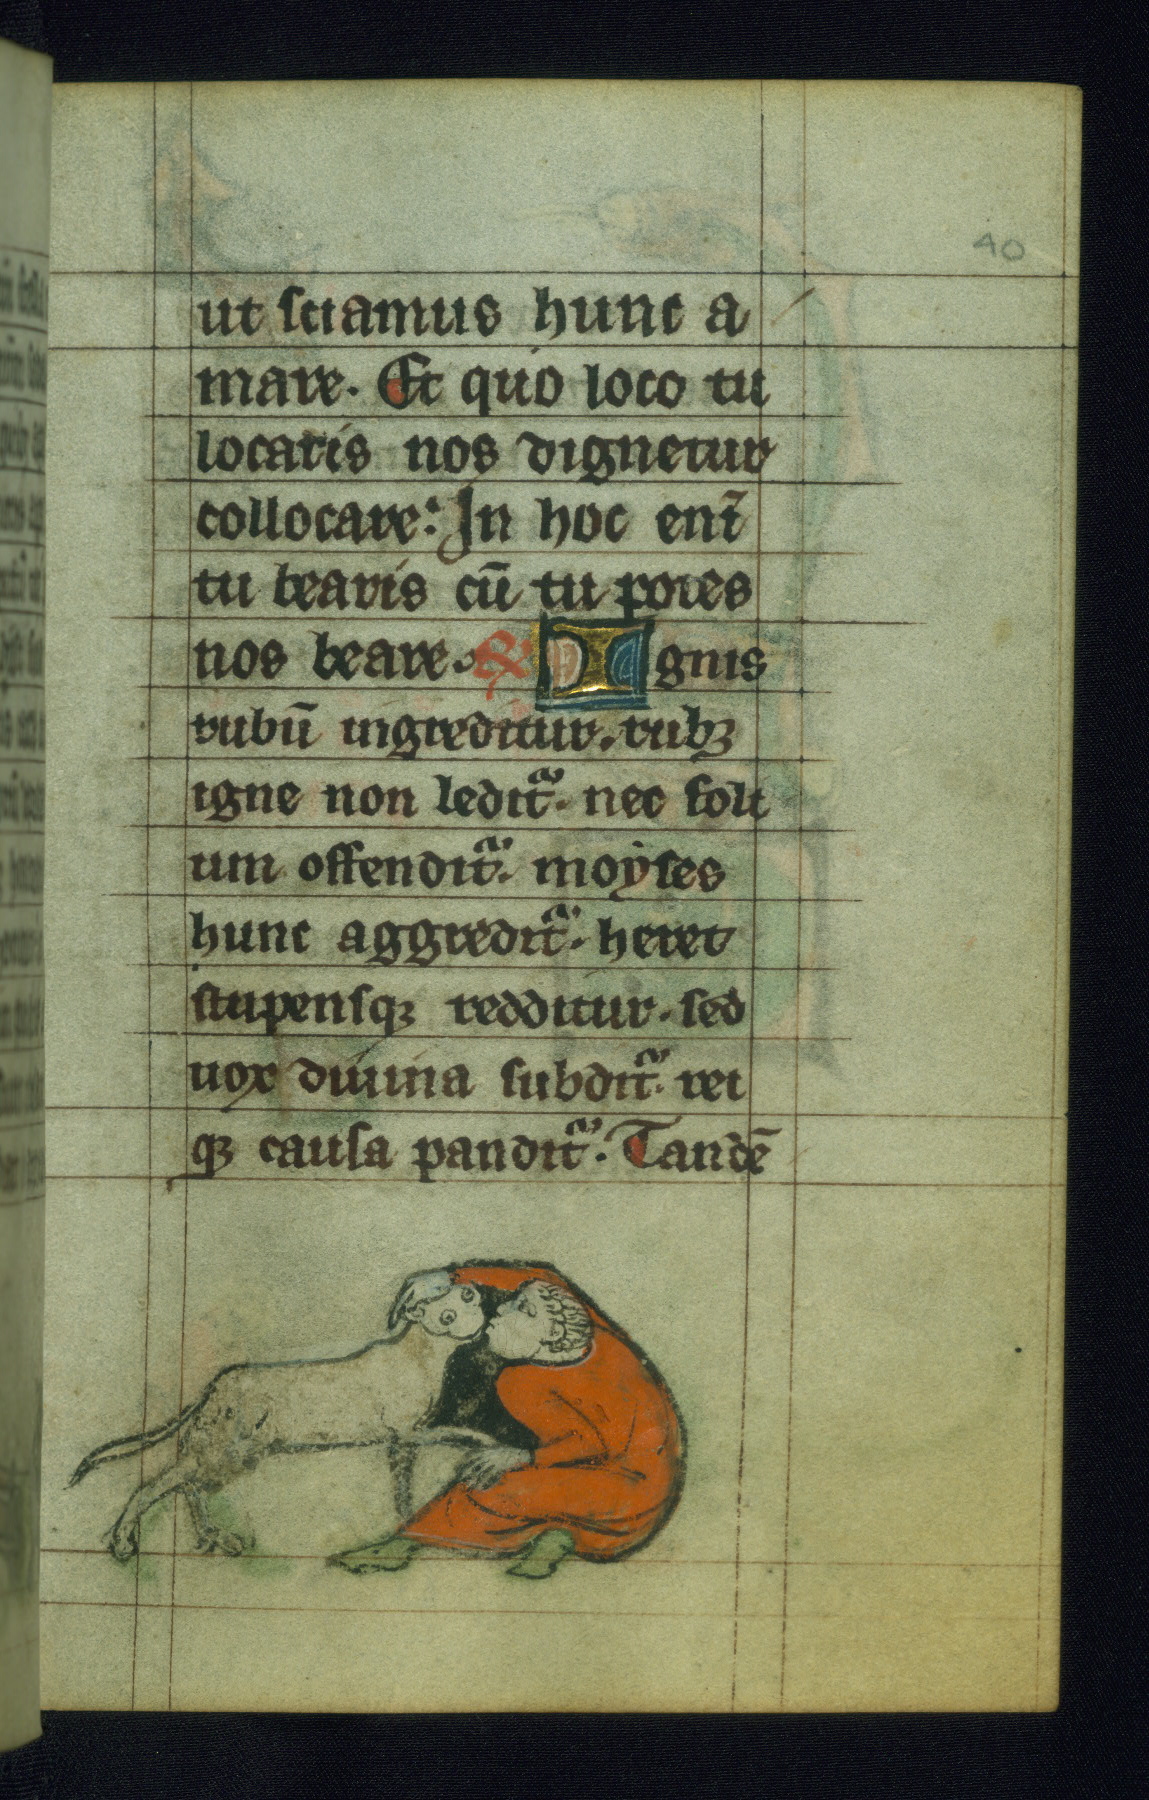 40
ut sciamus hunc a
mare. Et quo loco tu
locaris nos dignetur
collocare. In hoc eni̅
tu bearis cu̅ tu potes
nos beare. Ignis
rubu̅ ingreditur. rubꝫ
igne non ledit᷑. nec soli
um offendit᷑. moẏses
hunc aggredit᷑. heret
stupensqꝫ redditur. sed
uox diuina subdit᷑. rei
qꝫ causa pandit᷑. Tande̅